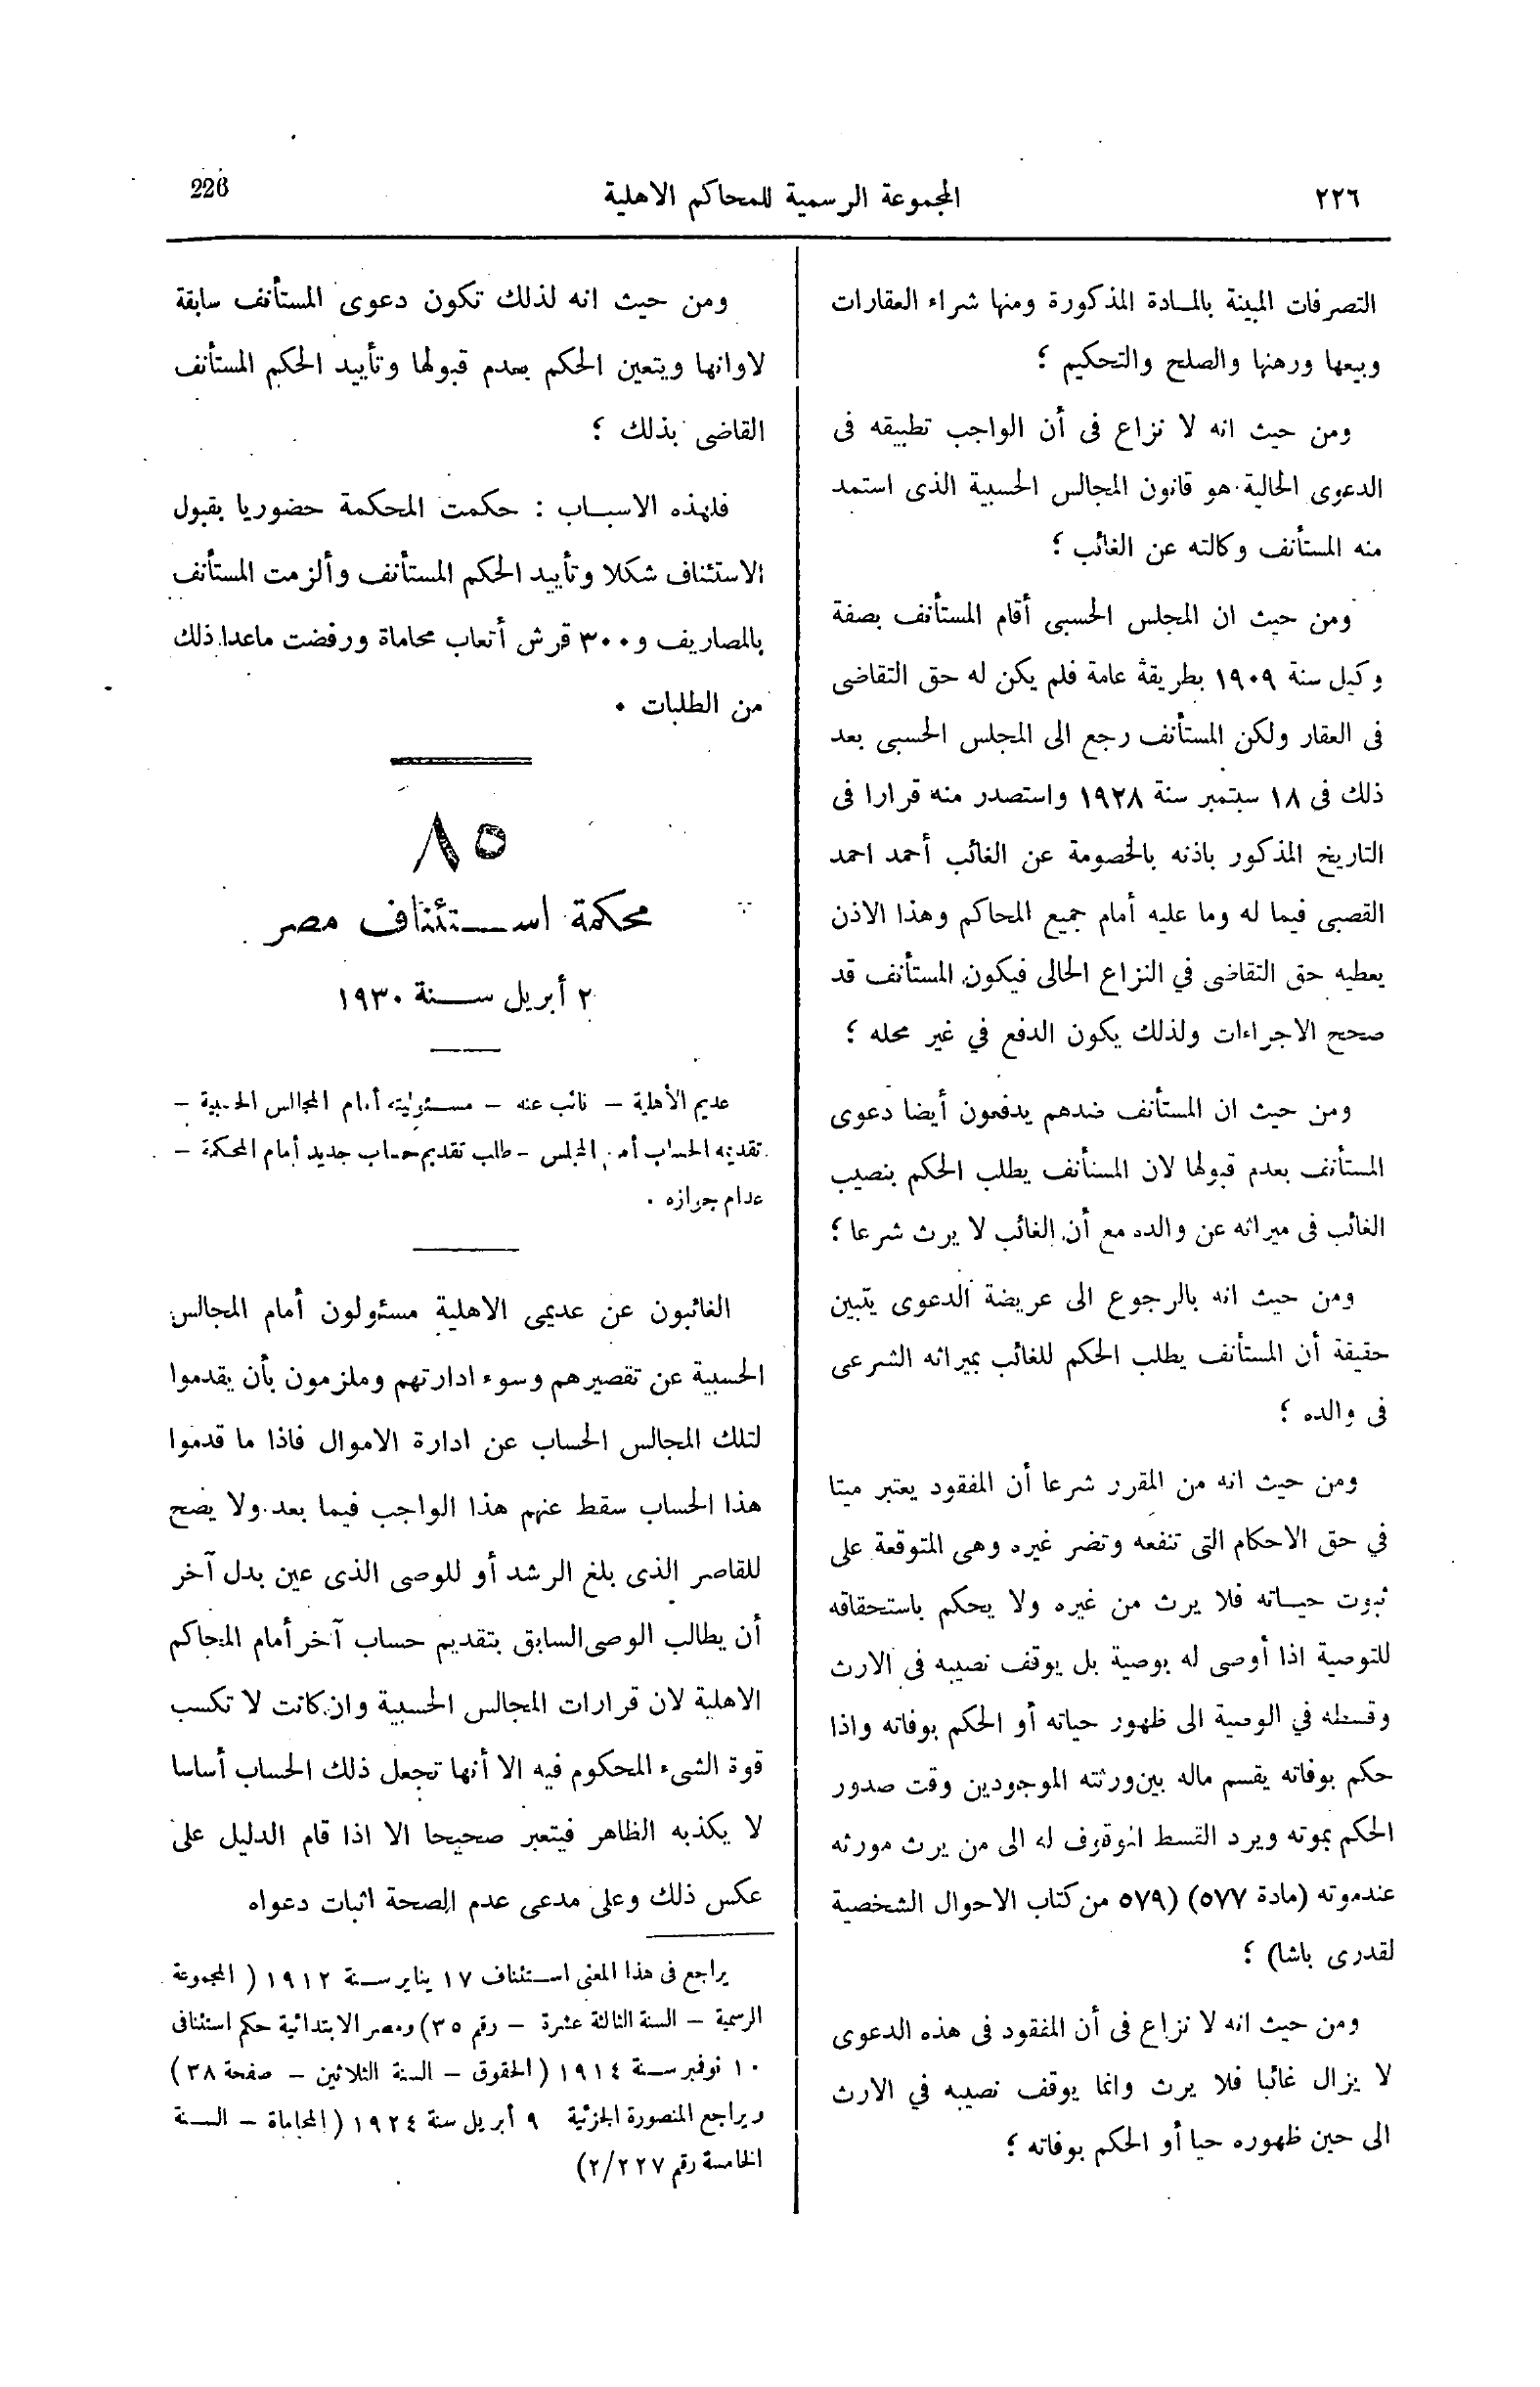 ٢٢٦
المجموعة الرسمية للمحاكم الاهلية
226
التصرفات المبينة بالمادة المذكورة ومنها شراء العقارات
وبيعها ورهنها والصلح والتحكيم ؛
ومن حيث انه لا نزاع فى أن الواجب تطبيقه فى
الدعوى الحالية هو قانون المجالس الحسبية الذى استمد
منه المستأنف وكالته عن الغائب ؛
ومن حيث ان المجلس الحسبى أقام المستأنف بصفة
وكيل سنة ١٩٠٩ بطريقة عامة فلم يكن له حق التقاضى
فى العقار ولكن المستأنف رجع الى المجلس الحسبى بعد
ذلك فى ١٨ سبتمبر سنة ١٩٢٨ واستصدر منه قرارا فى
التاريخ المذكور باذنه بالخصومة عن الغائب أحمد احمد
القصبى فيما له وما عليه أمام جميع المحاكم وهذا الاذن
يعطيه حق التقاضى في النزاع الحالى فيكون المستأنف قد
صحح الاجراءات ولذلك يكون الدفع في غير محله ؛
ومن حيث ان المستأنف ضدهم يدفعون أيضا دعوى
المستأنف بعدم قبولها لان المستأنف يطلب الحكم بنصيب
الغائب فى ميراثه عن والده مع أن الغائب لا يرث شرعا ؛
ومن حيث انه بالرجوع الى عريضة الدعوى يتبين
حقيقة أن المستأنف يطلب الحكم للغائب بميراثه الشرعى
فى والده ؛
ومن حيث انه من المقرر شرعا أن المفقود يعتبر ميتا
في حق الاحكام التى تنفعه وتضر غيره وهى المتوقعة على
ثبوت حياته فلا يرث من غيره ولا يحكم باستحقاقه
للتوصية اذا أوصى له بوصية بل يوقف نصيبه فى الارث
وقسطه في الوصية الى ظهور حياته أو الحكم بوفاته واذا
حكم بوفاته يقسم ماله بين ورثته الموجودين وقت صدور
الحكم بموته ويرد القسط الموقوف له الى من يرث مورثه
عند موته (مادة ٥٧٧) (٥٧٩ من كتاب الاحوال الشخصية
لقدرى باشا) ؛
ومن حيث انه لا نزاع فى أن المفقود فى هذه الدعوى
لا يزال غائبا فلا يرث وانما يوقف نصيبه في الارث
الى حين ظهوره حيا أو الحكم بوفاته ؛
ومن حيث انه لذلك تكون دعوى المستأنف سابقة
لاوانها ويتعين الحكم بعدم قبولها وتأييد الحكم المستأنف
القاضى بذلك ؛
فلهذه الاسباب : حكمت المحكمة حضوريا بقبول
الاستئناف شكلا وتأييد الحكم المستأنف وألزمت المستأنف
بالمصاريف و٣٠٠ قرش أتعاب محاماة ورفضت ماعدا ذلك
من الطلبات .
٨٥
محكمة استئناف مصر
٢ أبريل سنة ١٩٣٠
عديم الأهلية – نائب عنه – مسئوليته أمام المجالس الحسبية –
تقديمه الحساب أمام المجلس – طلب تقديم حساب جديد أمام المحكمة –
عدام جوازه .
الغائبون عن عديمى الاهلية مسئولون أمام المجالس
الحسبية عن تقصيرهم وسوء ادارتهم وملزمون بأن يقدموا
لتلك المجالس الحساب عن ادارة الاموال فاذا ما قدموا
هذا الحساب سقط عنهم هذا الواجب فيما بعد ولا يضح
للقاصر الذى بلغ الرشد أو للوصى الذى عين بدل آخر
أن يطالب الوصى السابق بتقديم حساب آخر أمام المحاكم
الاهلية لان قرارات المجالس الحسبية وان كانت لا تكسب
قوة الشىء المحكوم فيه الا أنها تجعل ذلك الحساب أساسا
لا يكذبه الظاهر فيتعبر صحيحا الا اذا قام الدليل على
عكس ذلك وعلى مدعى عدم الصحة اثبات دعواه
يراجع فى هذا المعنى استئناف ١٧ يناير سنة ١٩١٢ ( المجموعة
الرسمية – السنة الثالثة عشرة – رقم ٣٥) ومصر الابتدائية حكم استئنافى
١٠ نوفمبر سنة ١٩١٤ (الحقوق – السنة الثلاثين – صفحة ٣٨)
ويراجع المنصورة الجزئية ٩ أبريل سنة ١٩٢٤ (المحاماة – السنة
الخامسة رقم ٢/٢٢٧)